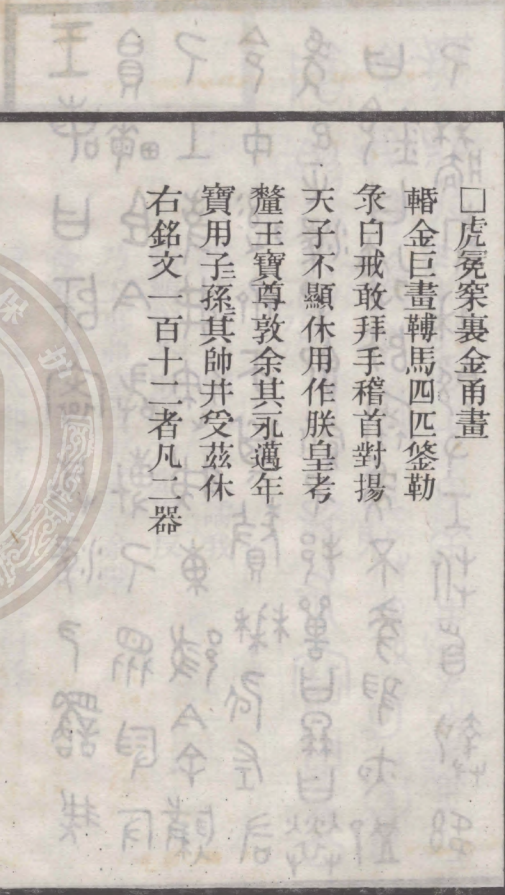 □虎冕䆷裏金甬畫
𨌲金巨畫䩹馬四匹鋚勒
彔白戒敢拜手稽首對揚
天子不顯休用作朕皇考
釐王寶尊敦余其永邁年
寶用子〻孫〻其帥井受茲休
右銘文一百十二者凡二器